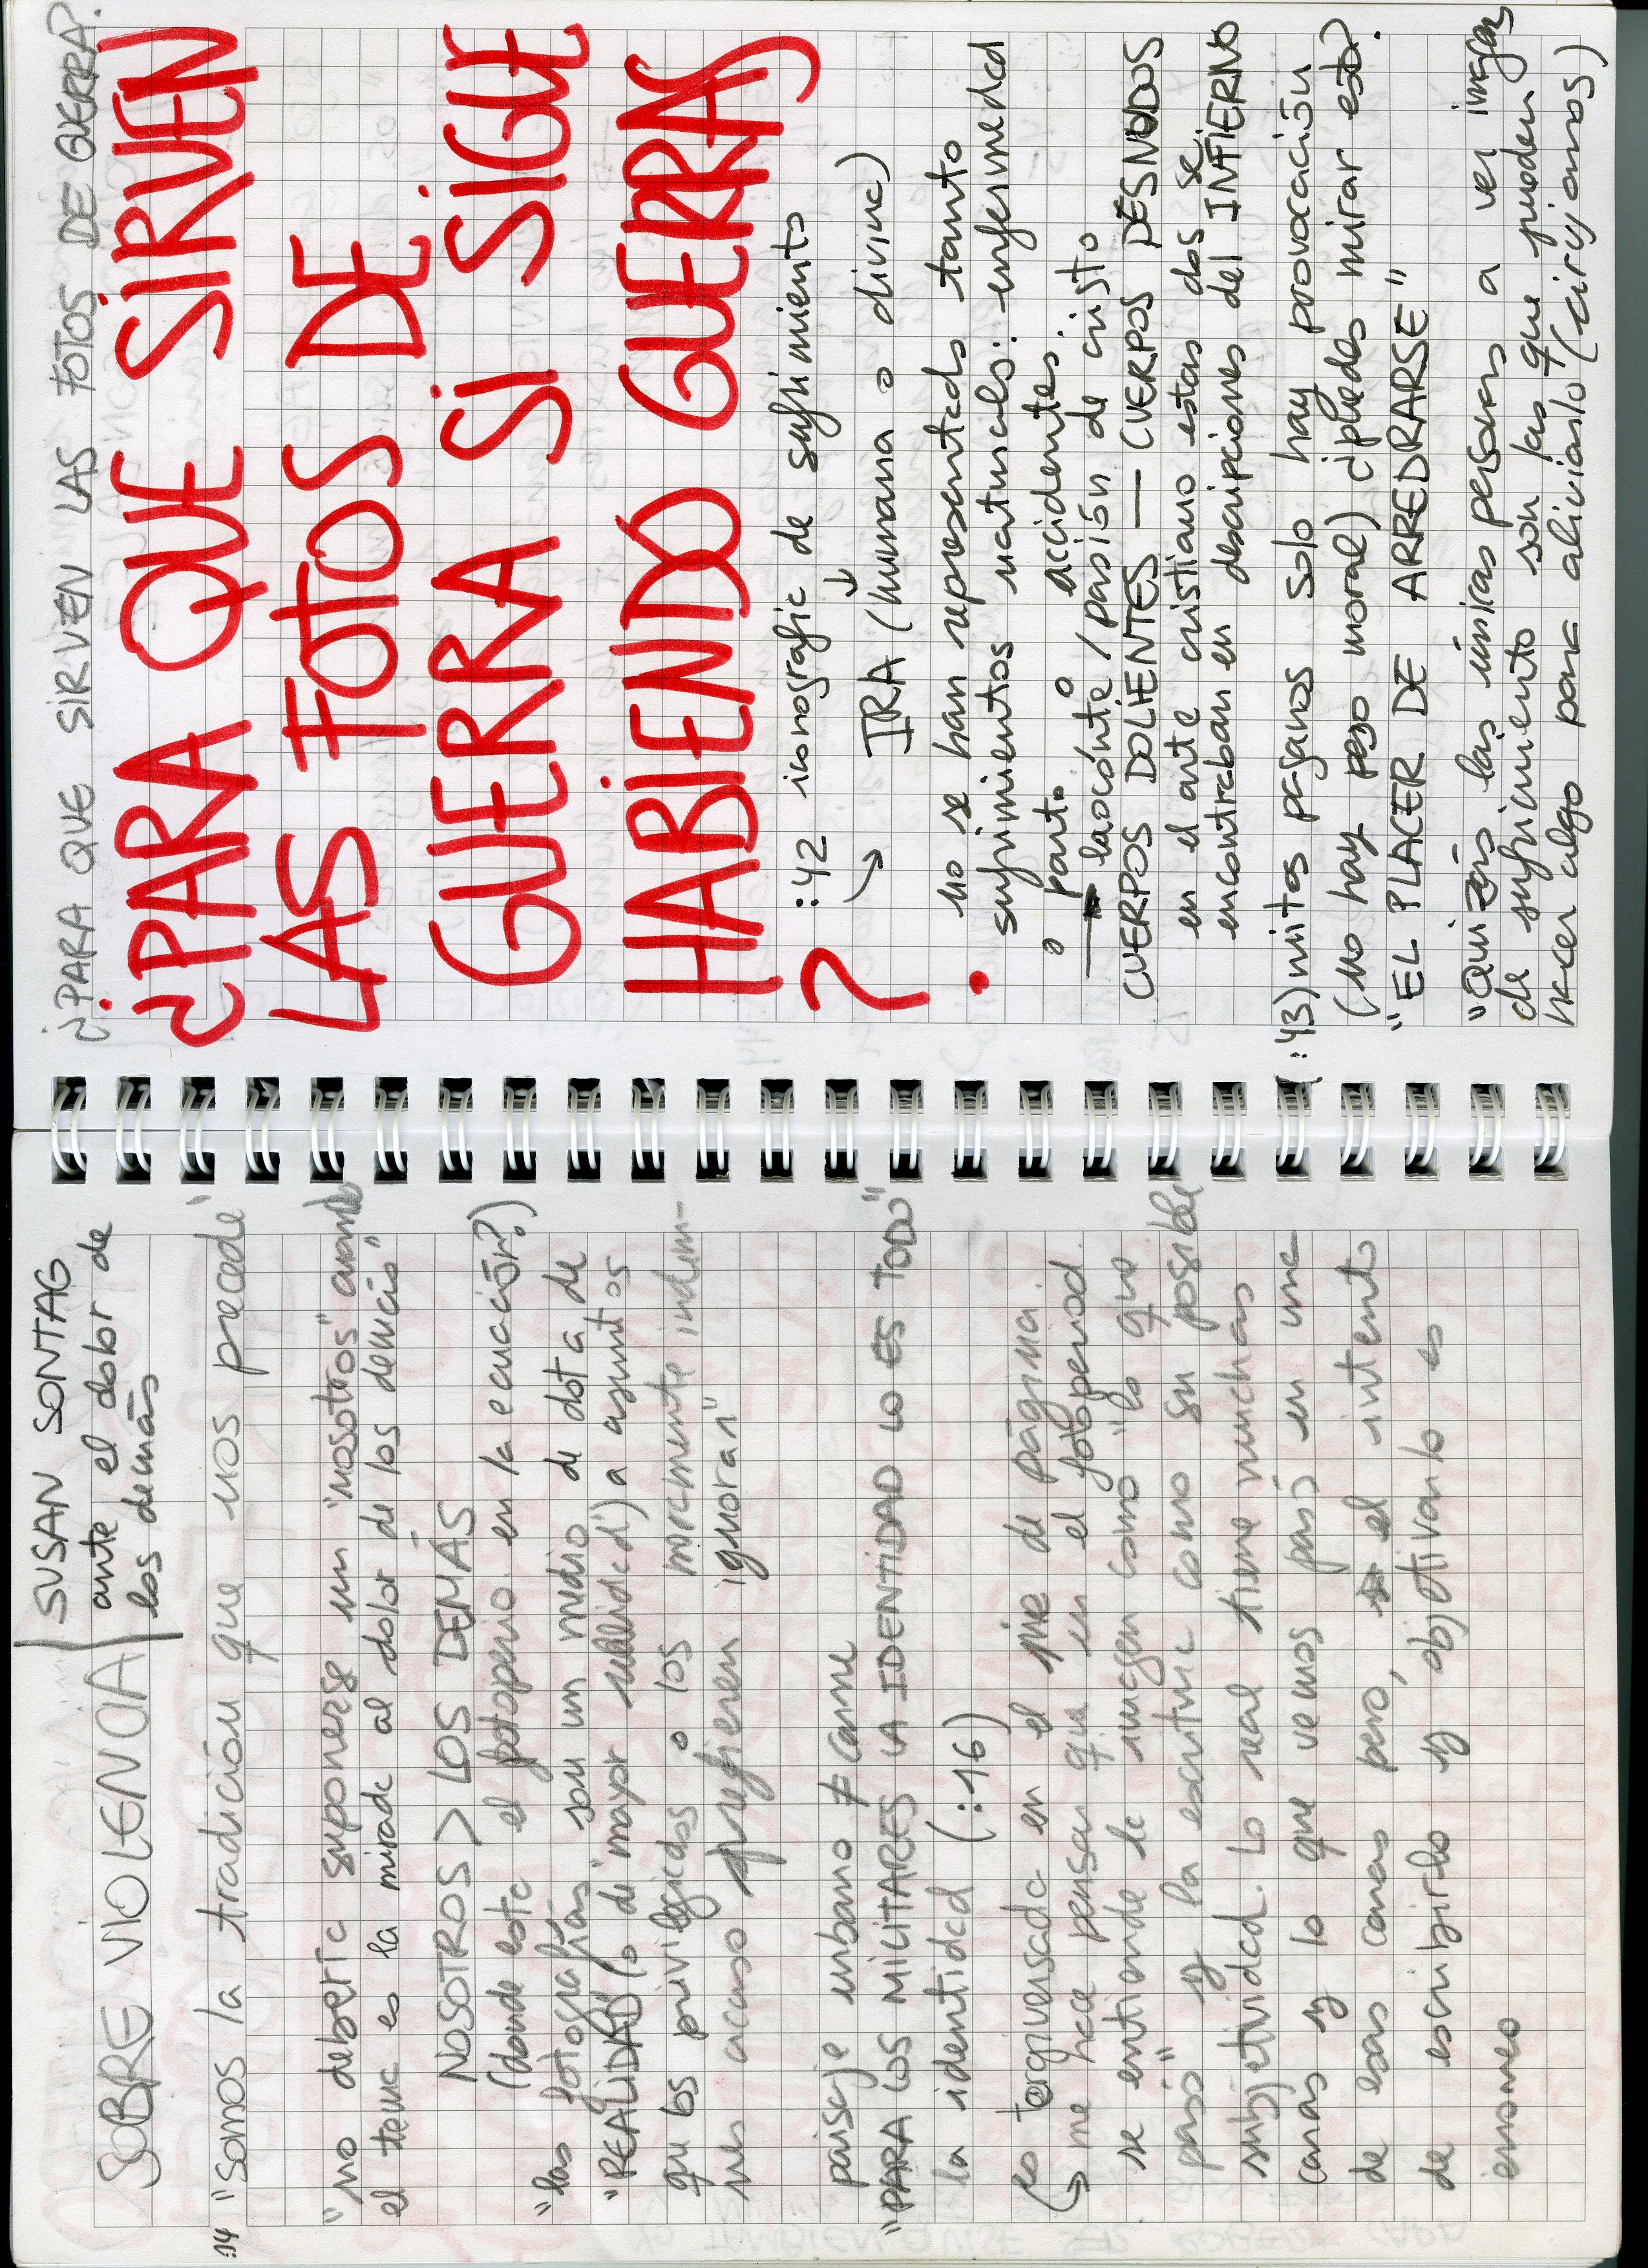 SOBRE VIOLENCIA
SUSAN SONTAG
ante el dolor de
los demás
:14 "Somos la tradición que nos precede"
"no debería suponerse un "nosotros" cuando
el tema es la mirada al dolor de los demás"
NOSOTROS > LOS DEMÁS
(donde este el fotoperio. en la ecuación?)
"las fotografías son un medio de dota de
"REALIDAD" (o de "mayor realidad") a asuntos
que los privilegiados o los meramente indem-
nes acaso prefieren ignorar"
paisaje urbano ≠ carne
"PARA LOS MILITARES LA IDENTIDAD LO ES TODO"
la identidad (:16)
es tergiversada en el pie de página.
↳ me hace pensar que en el fotoperiod.
se entiende la imagen como "lo que
pasó" y la escritura como su posible
subjetividad. Lo real tiene muchas
caras y lo que vemos pasó en una
de esas caras pero, el intento
de escribirlo y objetivarlo es
erroneo
¿PARA QUE SIRVEN LAS FOTOS DE GUERRA?
¿PARA QUE SIRVEN
LAS FOTOS DE
GUERRA SI SIGUE
HABIENDO GUERRAS
?
:42 iconografía de sufrimiento
↳ IRA (humana o divina)
no se han representado tanto
sufrimientos naturales: enfermedad
o parto o accidentes.
laoconte / pasión de cristo
CUERPOS DOLIENTES — CUERPOS DESNUDOS
en el arte cristiano estas dos se
encontraban en descripciones del INFIERNO
(:43) mitos paganos solo hay provocación
(no hay peso moral) ¿puedes mirar esto?
"EL PLACER DE ARREDRARSE"
"Quizás las únicas personas a ver imagenes
de sufrimiento son las que pueden
hacer algo para aliviarlo (cirujanos)